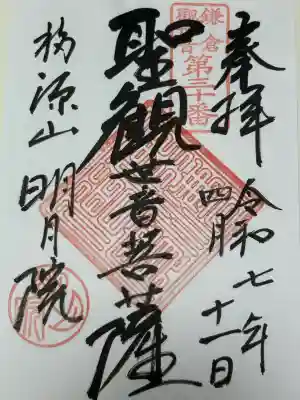 奉拝
令和七年
四月十一日
鎌倉
聖観音
第三十番
聖観世音菩薩
福源山
明月院